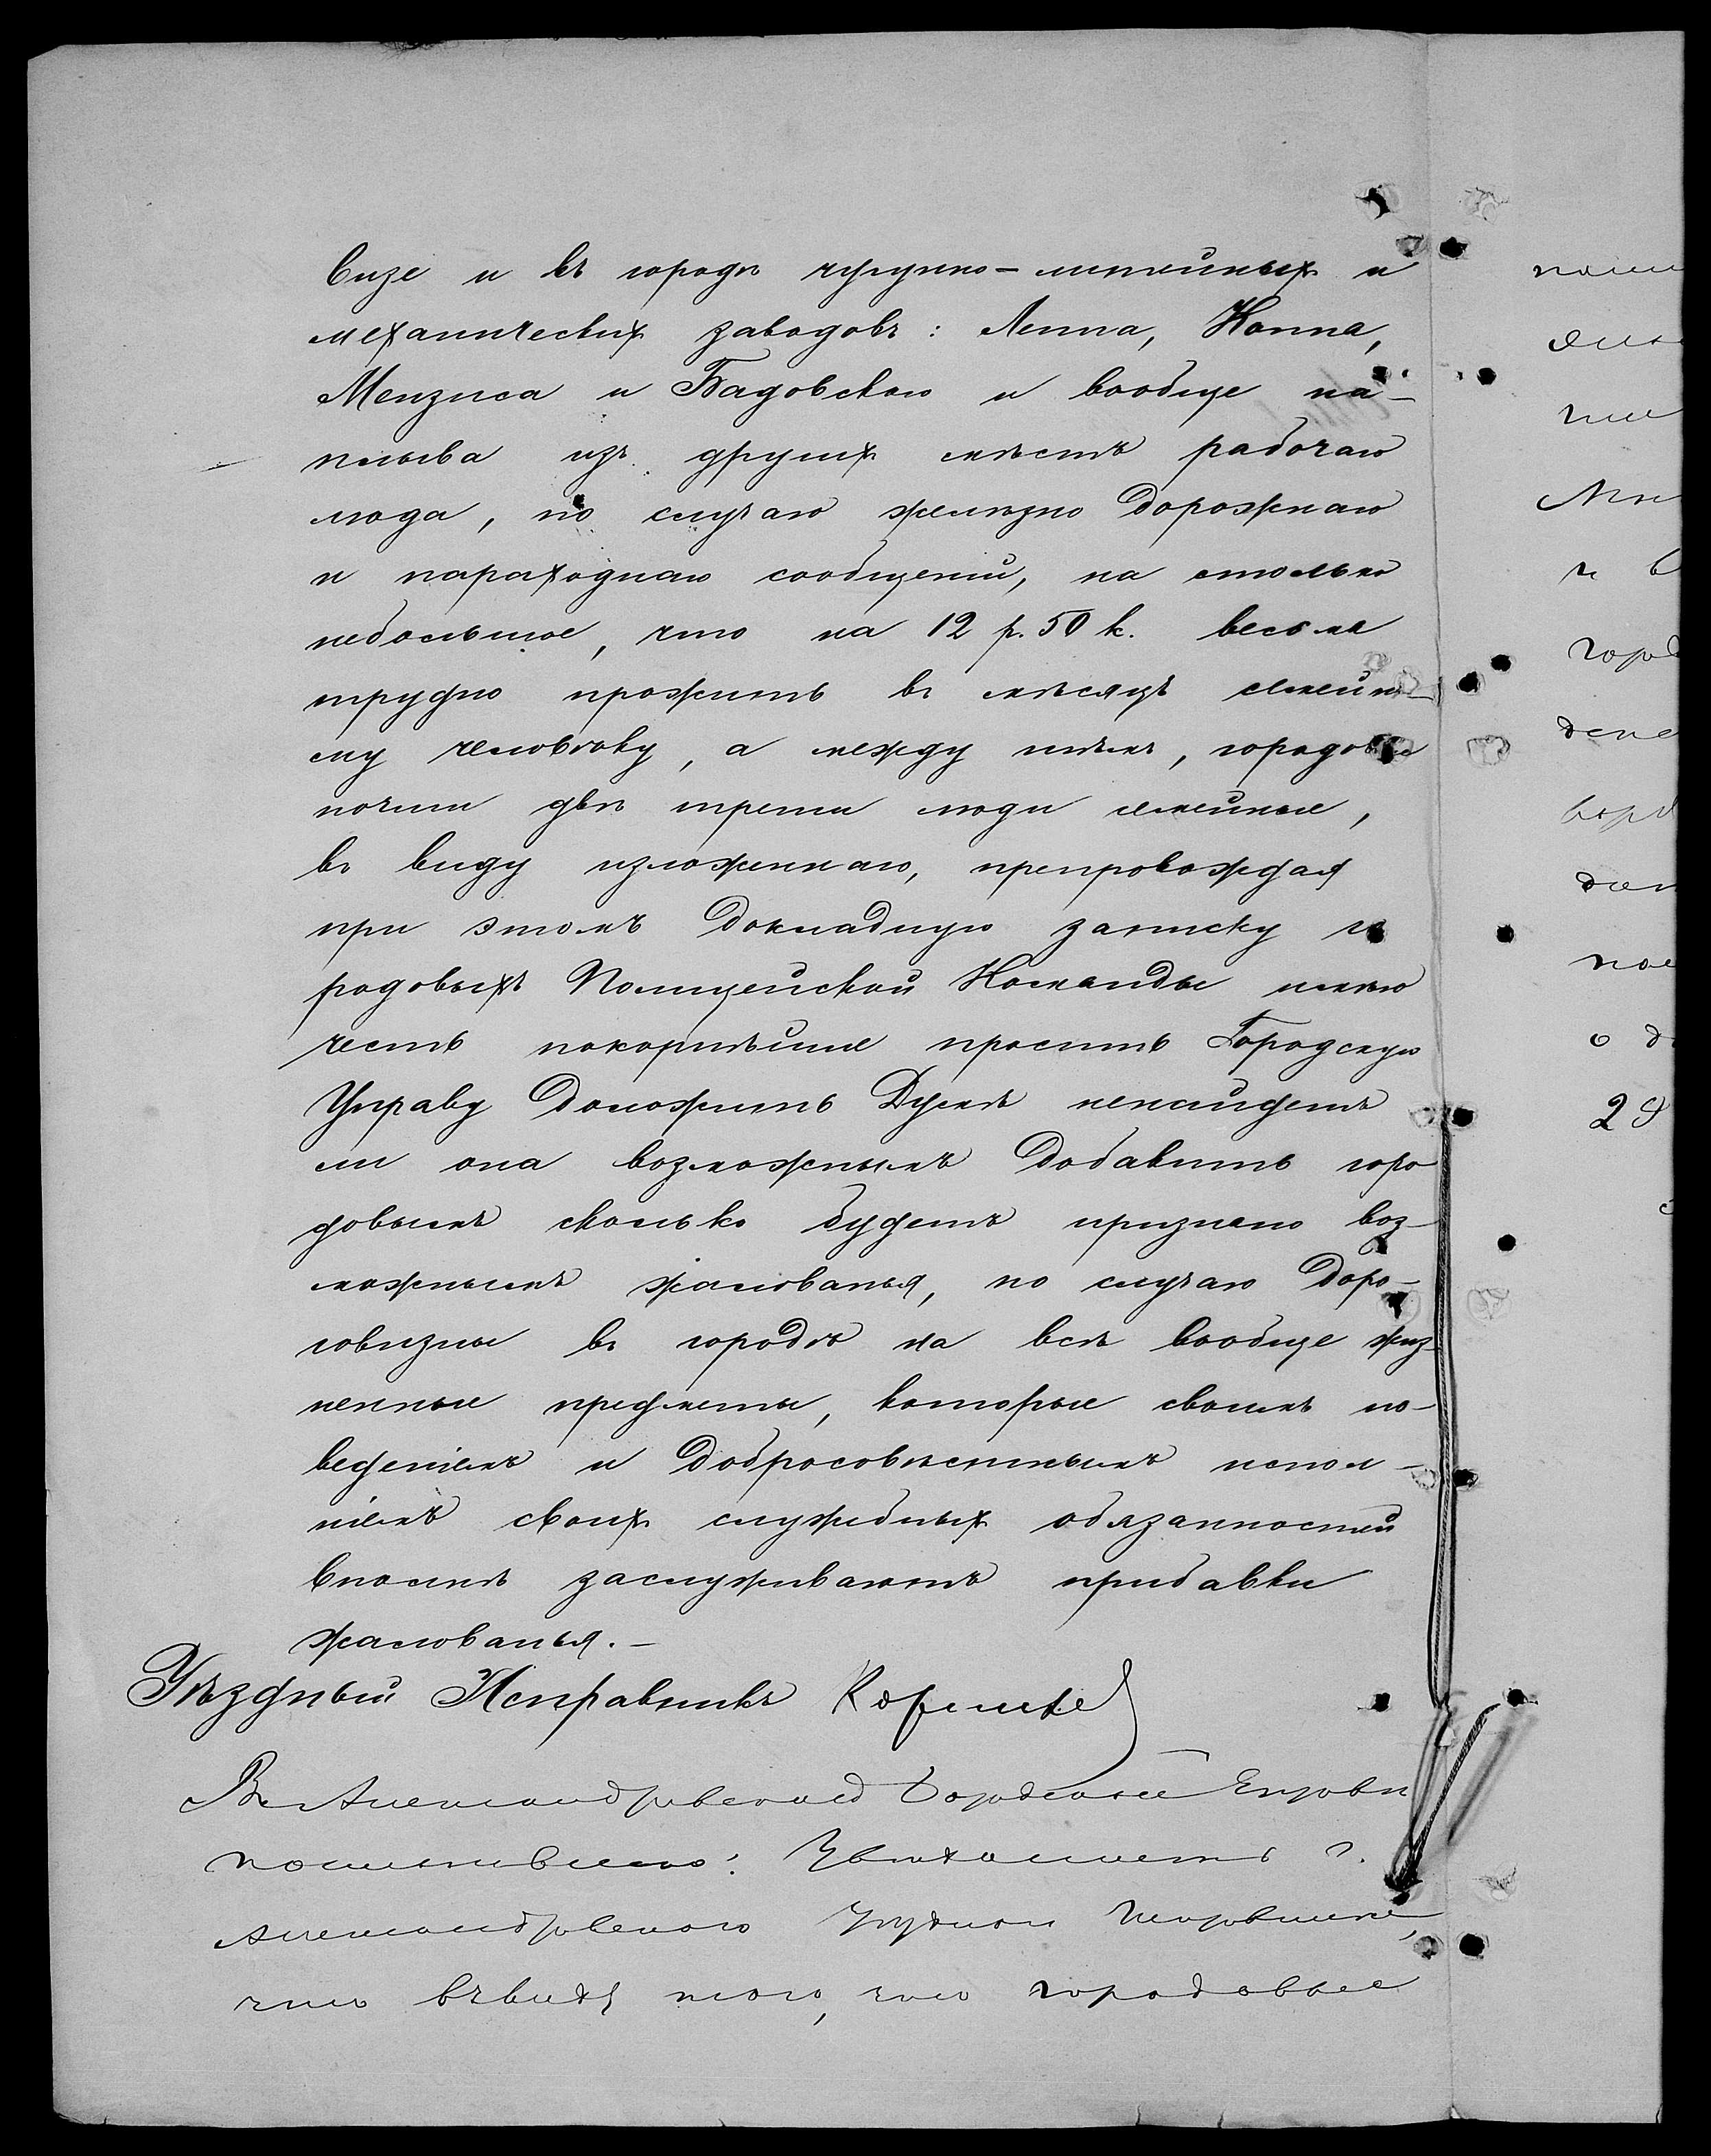 визе и въ городѣ чугунно-литейныхъ и
механическихъ заводовъ: Леппа, Коппа,
Мензиса и Бадовскаго и вообще на-
плыва изъ другихъ мѣстъ рабочаго
люда, по случаю желѣзно дорожнаго
и параходнаго сообщеній, на столько
небольшое, что на 12 р. 50 к. весьма
трудно прожить въ мѣсяцъ семейно-
му человѣку, а между тѣмъ, городовые
почти двѣ трети люди семейные,
въ виду изложеннаго, препровождая
при этомъ докладную записку го
родовыхъ Полицейской Команды имѣю
честь покорнѣйше просить Городскую
Управу доложить Думѣ ненайдетъ
ли она возможнымъ добавить горо
довымъ сколько будетъ признано воз-
можнымъ жалованья, по случаю доро-
говизны въ городѣ на всѣ вообще жиз-
ненные предметы, которые своимъ по-
веденіемъ и добросовѣстнымъ испол-
ніемъ своихъ служебныхъ обязанностей
вполнѣ заслуживаютъ прибавки
жалованья.-
Уѣздный Исправникъ
Въ Александровской Городской Управѣ
постановлено: Увѣдомить г.
Александровского Уѣздного Исправника,
что въ виду того, что городовые
пош
ч в
город
дене
о д